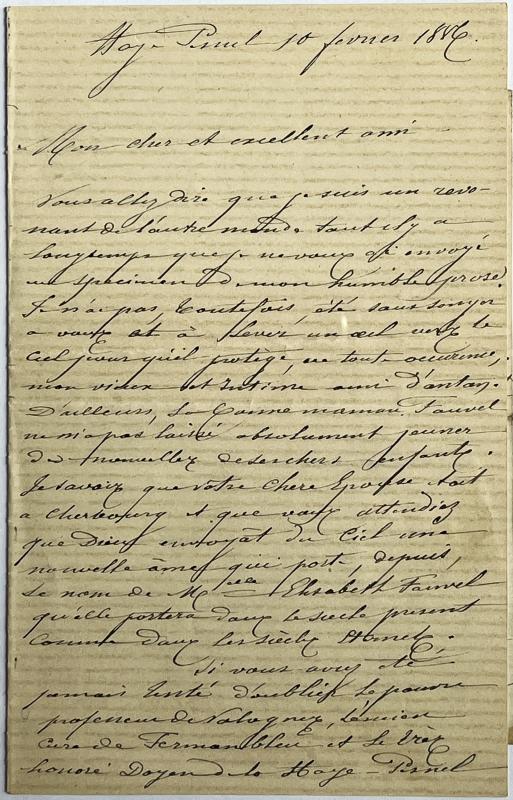 Haye-Pesnel 10 fevrier 1886.
Mon cher et excellent ami
Vous allez dire que je suis un reve-
nant de l'autre monde tant il y a
longtemps que je ne vous ai envoyé
un specimen de mon humble prose.
Je n'ai pas, toutefois, été sans songer
a vous et à lever un œil vers le
Ciel pour qu'il protége en toute occurence,
mon vieux et intime ami d'antan.
D'ailleurs, la bonne maman Fauvel
ne m'a pas laissé absolument jeuner
de nouvelles de ses chers enfants.
Je savais que votre chere Epouse etait
a Cherbourg et que vous attendiez
que Dieu envoyat du Ciel une
nouvelle âme qui porte, depuis,
le nom de Melle Elisabeth Fauvel
qu'elle portera dans le siecle present
comme dans les siècles eternels.
Si vous aviez été
jamais tenté d'oublier le pauvre
professeur de Valognes, l'ancien
Curé de et le très
honoré Doyen de la Haye-Pesnel